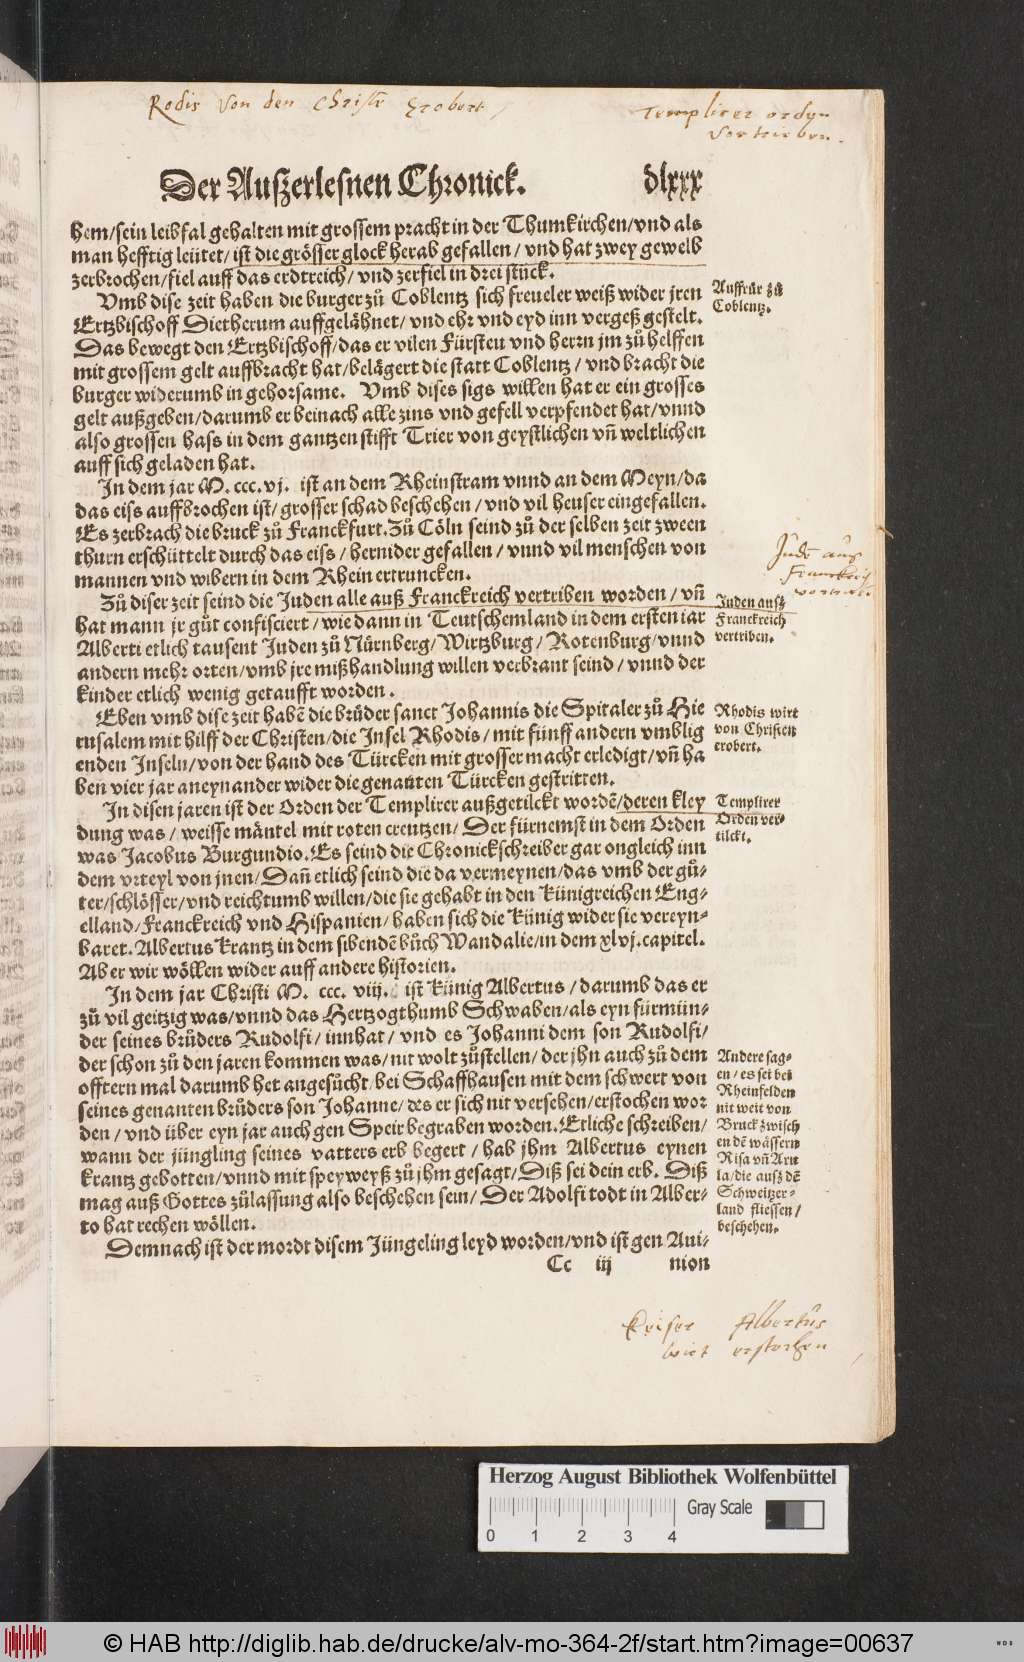 Rodis von den Christē erobert /
Templirer ordyn
vertrieben.
Der Außerlesnen Chronick. dlxxx
hem/sein leibfal gehalten mit grossem pracht in der Thumkirchen/vnd als
man hefftig leütet/ist die grösser glock herab gefallen/vnd hat zwey gewelb
zerbrochen/fiel auff das erdtreich/vnd zerfiel in drei stück.
Vmb dise zeit haben die burger zů Coblentz sich freueler weiß wider jren
Ertzbischoff Dietherum auffgelähnet/vnd ehr vnd eyd inn vergeß gestelt.
Das bewegt den Ertzbischoff/das er vilen Fürsten vnd herrn jm zů helffen
mit grossem gelt auffbracht hat/belägert die statt Coblentz/vnd bracht die
burger widerumb in gehorsame. Vmb dises sigs willen hat er ein grosses
gelt außgeben/darumb er beinach alle zins vnd gefell verpfendet hat/vnnd
also grossen hass in dem gantzen stifft Trier von geystlichen vñ weltlichen
auff sich geladen hat.
Auffrür zů
Coblentz.
In dem jar M. ccc. vj. ist an dem Rheinstram vnnd an dem Meyn/da
das eiss auffbrochen ist/grosser schad beschehen/vnd vil heuser eingefallen.
Es zerbrach die bruck zů Franckfurt. Zů Cöln seind zů der selben zeit zween
thurn erschüttelt durch das eiss/hernider gefallen/vnnd vil menschen von
mannen vnd wibern in dem Rhein ertruncken.
Zů diser zeit seind die Juden alle auß Franckreich vertriben worden/vñ
hat mann jr gůt confisciert/wie dann in Teutschemland in dem ersten iar
Alberti etlich tausent Juden zů Nürnberg/Wirtzburg/Rotenburg/vnnd
andern mehr orten/vmb jre mißhandlung willen verbrant seind/vnnd der
kinder etlich wenig getaufft worden.
Judē aus
Franckreich
vertriben
Juden ausz
Franckreich
vertriben.
Eben vmb dise zeit habē die brüder sanct Johannis die Spitaler zů Hie
rusalem mit hilff der Christen/die Insel Rhodis/mit fünff andern vmblig
enden Inseln/von der hand des Türcken mit grosser macht erledigt/vñ ha
ben vier jar aneynander wider die genanten Türcken gestritten.
Rhodis wirt
von Christen
erobert.
In disen jaren ist der Orden der Templirer außgetilckt wordē/deren kley
dung was/weisse mäntel mit roten creutzen/Der fürnemst in dem Orden
was Jacobus Burgundio. Es seind die Chronickschreiber gar ongleich inn
dem vrteyl von jnen/Dañ etlich seind die da vermeynen/das vmb der gů-
ter/schlösser/vnd reichtumb willen/die sie gehabt in den künigreichen Eng-
elland/Franckreich vnd Hispanien/haben sich die künig wider sie vereyn-
baret. Albertus krantz in dem sibendē bůch Wandalie/in dem xlvj. capitel.
Aber wir wöllen wider auff andere historien.
Templirer
Orden ver-
tilckt.
In dem jar Christi M. ccc. viij. ist künig Albertus/darumb das er
zů vil geitzig was/vnnd das Hertzogthumb Schwaben/als eyn fürmün-
der seines brůders Rudolfi/innhat/vnd es Johanni dem son Rudolfi/
der schon zů den jaren kommen was/nit wolt zůstellen/der jhn auch zů dem
offtern mal darumb het angesücht/bei Schaffhausen mit dem schwert von
seines genanten brůders son Johanne/des er sich nit versehen/erstochen wor
den/vnd über eyn jar auch gen Speir begraben worden. Etliche schreiben/
wann der jüngling seines vatters erb begert/hab jhm Albertus eynen
krantz gebotten/vnnd mit speyweyß zů jhm gesagt/Diß sei dein erb. Diß
mag auß Gottes zůlassung also beschehen sein/Der Adolfi todt in Alber-
to hat rechen wöllen.
Andere sag-
en/es sei bei
Rheinfelden
nit weit von
Bruck zwisch
en dē wässern
Risa vñ Aru
la/die ausz dē
Schweitzer-
land fliessen/
beschehen.
Demnach ist der mordt disem Jüngeling leyd worden/vnd ist gen Aui-
Cc iij nion
Keiser Albertus
wirt erstochen
Herzog August Bibliothek Wolfenbüttel
Gray Scale
0 1 2 3 4
© HAB http://diglib.hab.de/drucke/alv-mo-364-2f/start.htm?image=00637